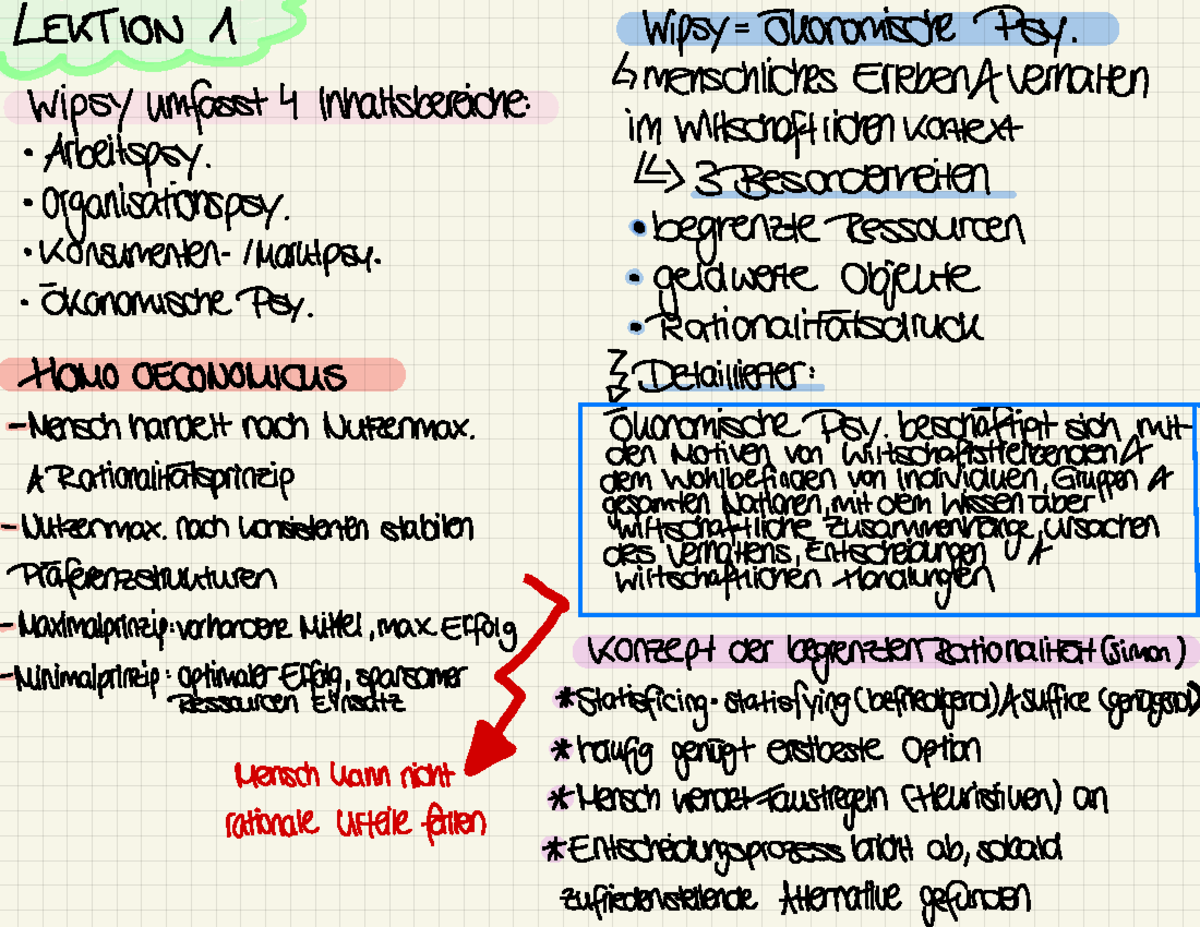 LEKTION 1
Wipsy umfasst 4 Inhaltsbereiche:
• Arbeitspsy.
• Organisationspsy.
• Konsumenten- / Marktpsy.
• Ökonomische Psy.
HOMO OECONOMICUS
- Mensch handelt nach Nutzenmax.
& Rationalitätsprinzip
- Nutzenmax. nach konsistenten stabilen
Präferenzstrukturen
- Maximalprinzip: vorhandene Mittel, max Erfolg
- Minimalprinzip: optimaler Erfolg, sparsamer
Ressourcen Einsatz
Mensch kann nicht
rationale Urteile fällen
Wipsy = Ökonomische Psy.
↳ menschliches Erleben & Verhalten
im wirtschaftlichen Kontext
↳> 3 Besonderheiten
• begrenzte Ressourcen
• geldwerte Objekte
• Rationalitätsdruck
Detaillierter:
Ökonomische Psy. beschäftigt sich mit
den Motiven von Wirtschaftstreibenden &
dem Wohlbefinden von Individuen, Gruppen &
gesamten Nationen, mit dem Wissen über
wirtschaftliche Zusammenhänge, Ursachen
des Verhaltens, Entscheidungen &
wirtschaftlichen Handlungen
Konzept der begrenzten Rationalität (Simon)
* Statisficing • statisfying (befriedigend) & suffice (genügsam)
* häufig genügt erstbeste Option
* Mensch wendet Faustregeln (Heuristiken) an
* Entscheidungsprozess bricht ab, sobald
zufriedenstellende Alternative gefunden